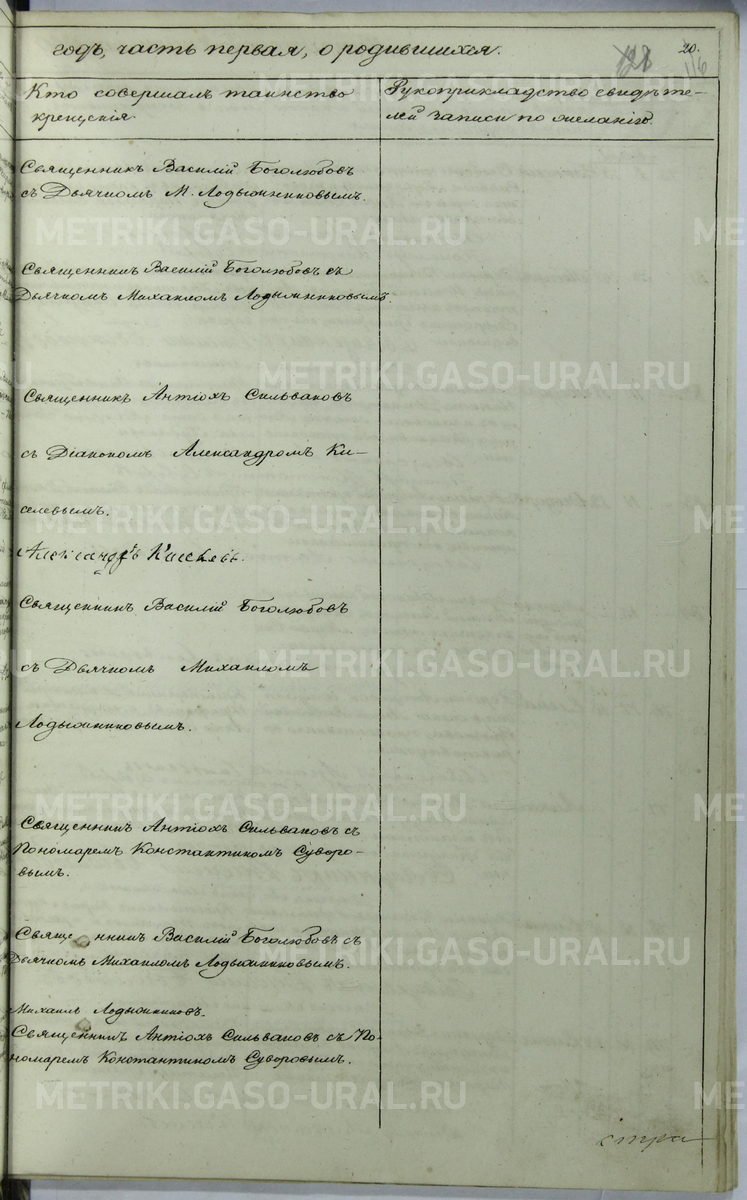 годъ, часть первая, о родившихся.
128 20.
116
Кто совершалъ таинство
крещенія
Рукоприкладство свидѣте-
лей записи по желанію.
Священникъ Василій Боголюбовъ
съ Дьячкомъ М. Лодыжниковымъ.
Священникъ Василій Боголюбовъ съ
Дьячкомъ Михаиломъ Лодыжниковымъ
Священникъ Антіохъ Сильвановъ
съ Діакономъ Александромъ Ки-
селевымъ.
Александръ Киселевъ.
Священникъ Василій Боголюбовъ
съ Дьячкомъ Михаиломъ
Лодыжниковымъ.
Священникъ Антіохъ Сильвановъ съ
Пономаремъ Константиномъ Суворо-
вымъ.
Священникъ Василій Боголюбовъ съ
Дьячкомъ Михаиломъ Лодыжниковымъ.
Михаилъ Лодыжниковъ.
Священникъ Антіохъ Сильвановъ съ По-
номаремъ Константиномъ Суворовымъ.
METRIKI.GASO-URAL.RU